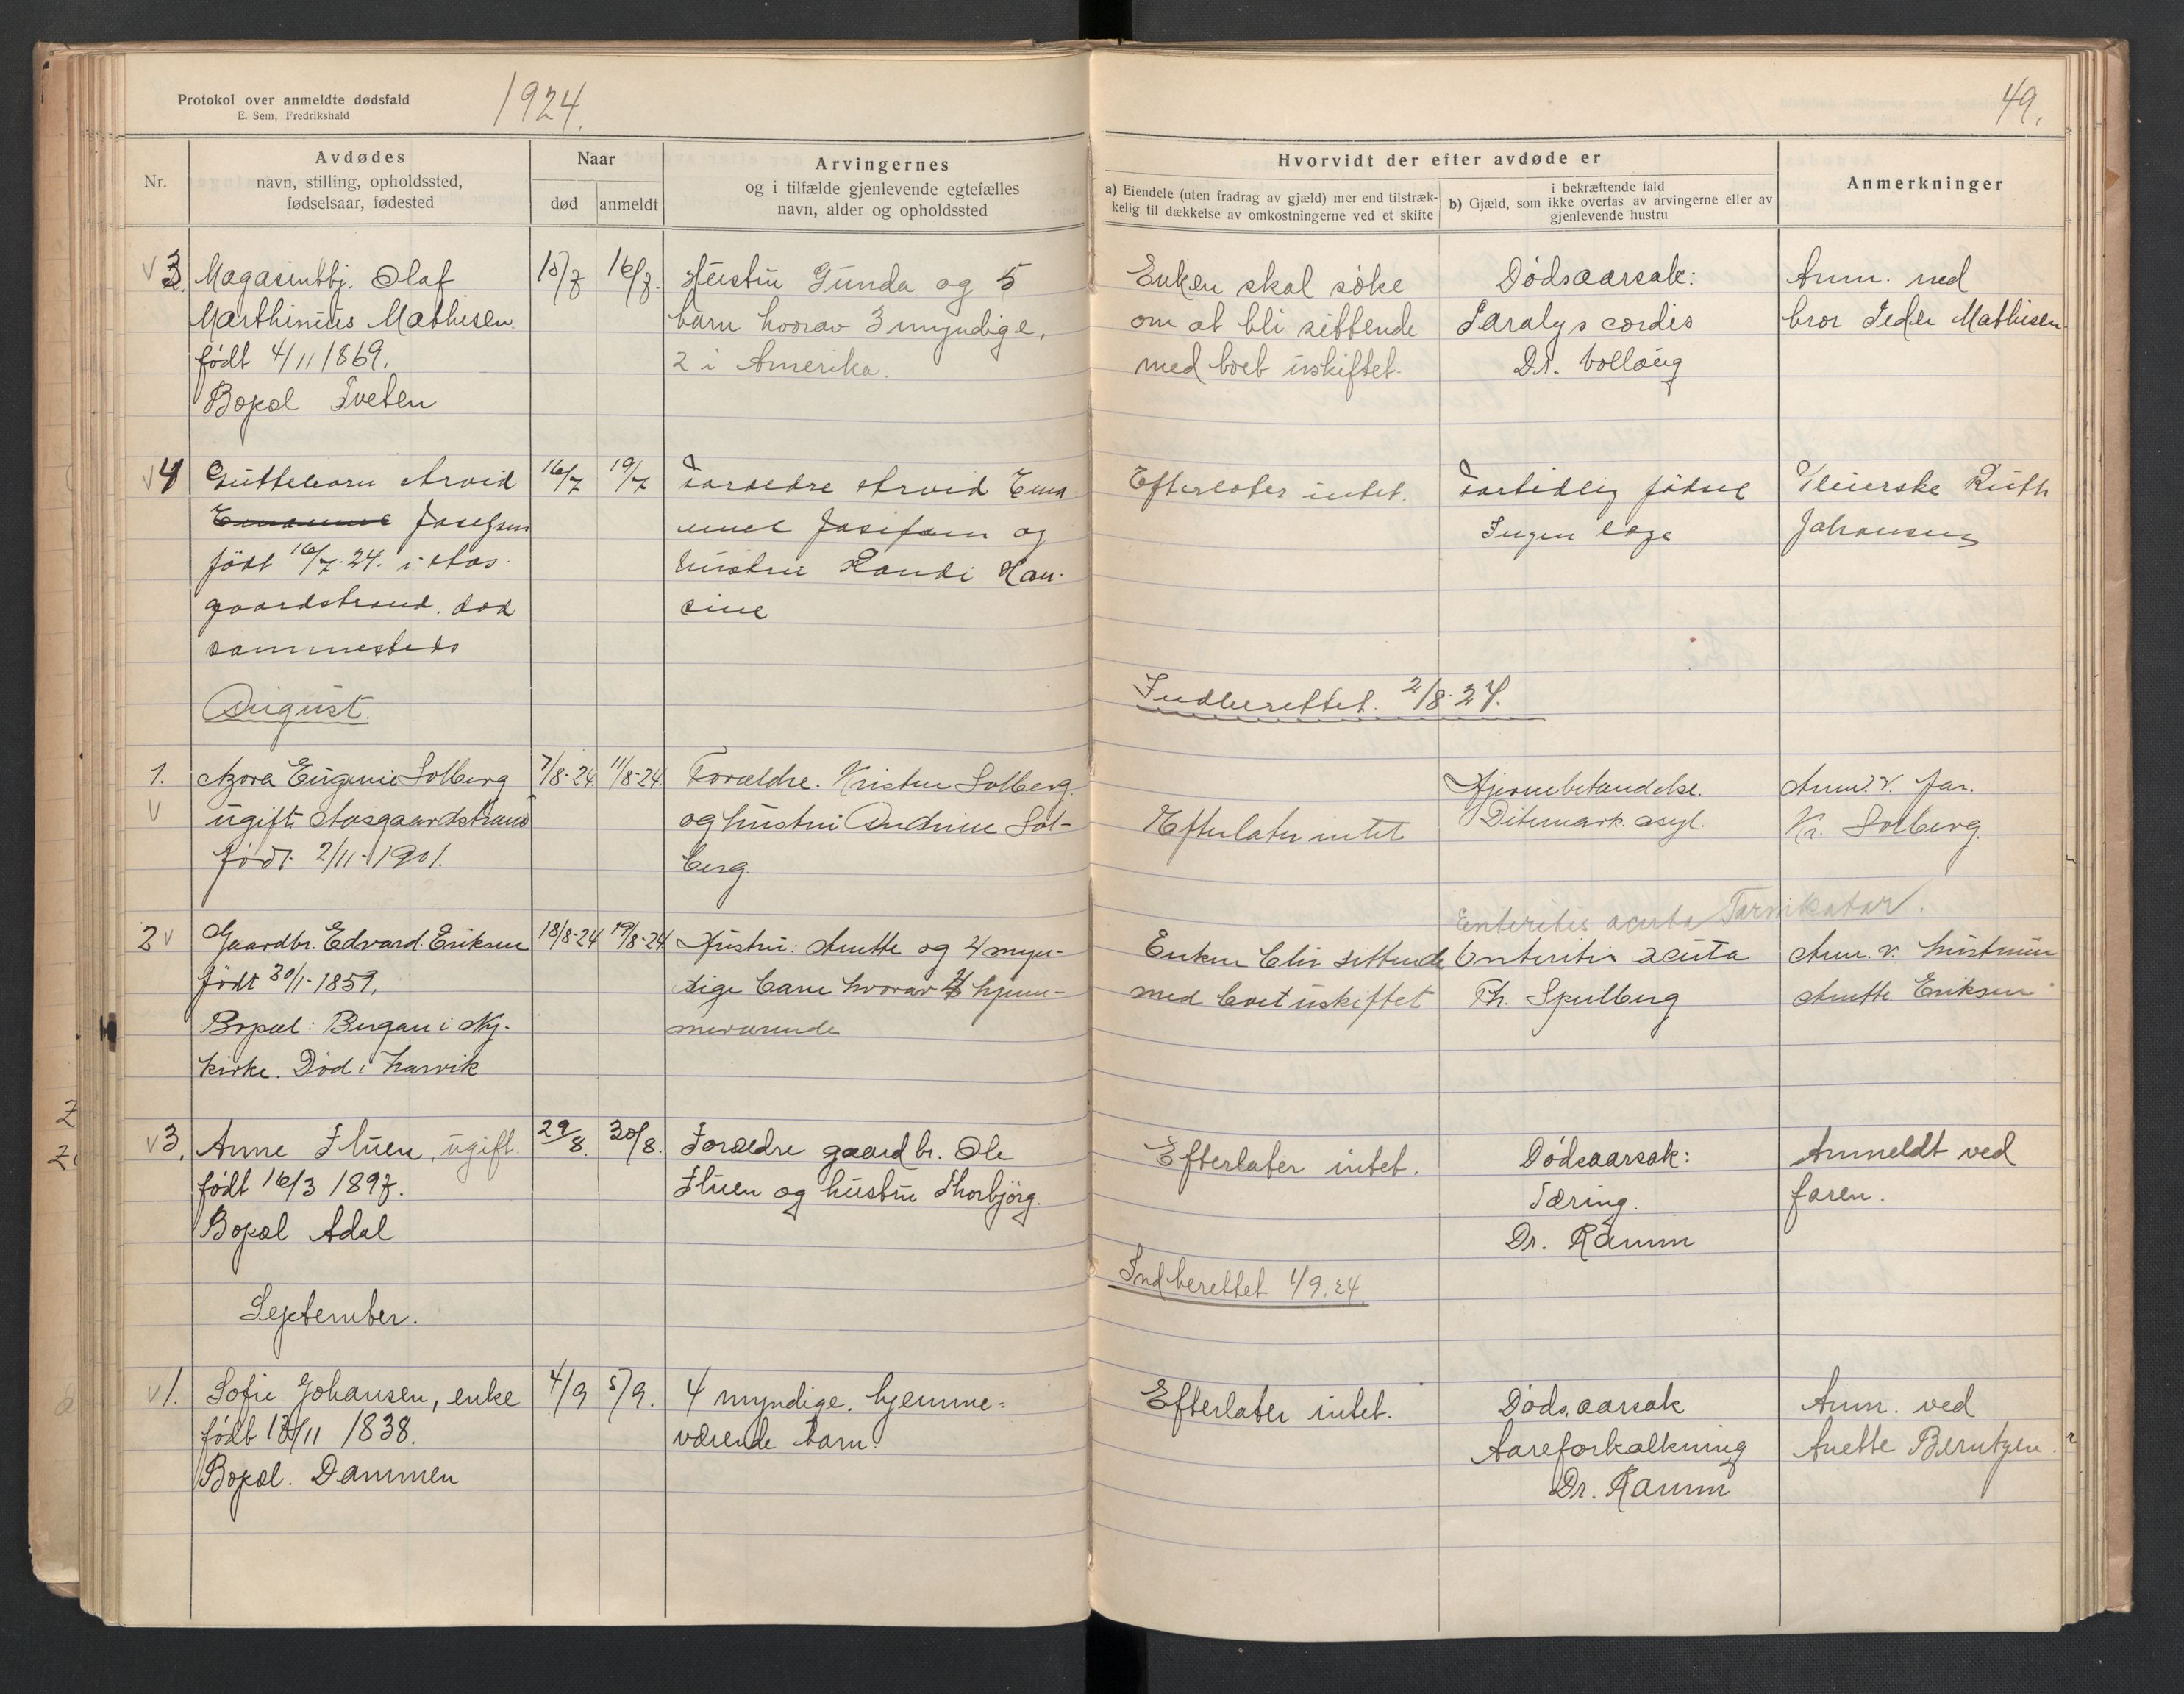 Protokol over anmeldte dødsfald
E. Sem, Fredrikshald
1924.
49.
Nr.
Avdødes
navn, stilling, opholdssted,
fødselsaar, fødested
Naar
død
anmeldt
Arvingernes
og i tilfælde gjenlevende egtefælles
navn, alder og opholdssted
Hvorvidt der efter avdøde er
a) Eiendele (uten fradrag av gjæld) mer end tilstræk-
kelig til dækkelse av omkostningerne ved et skifte
i bekræftende fald
b) Gjæld, som ikke overtas av arvingerne eller av
gjenlevende hustru
Anmerkninger
3. Magasinbbj. Olaf
Marthinius Mathisen
født 4/11 1869.
Bopæl Tveten
15/7 16/7.
Hustru Gunda og 5
barn hvorav 3 myndige,
2 i Amerika.
Enken skal søke
om at bli sittende
med boet uskiftet.
Dødsaarsak:
Paralys cordis
Dr. Vollaug
Anm. ved
bror Peder Mathisen
4 Guttebarn Arvid
Josefsen
født 16/7.24. i Aas-
gaardstrand. død
sammesteds
16/7 19/7
Foreldre Arvid Ema
nuel Josefsen og
hustru Randi Han-
sine
Efterlater intet.
Fortidlig födsel
Ingen læge
Pleierske Ruth
Johansen
August.
Indberettet. 2/8.24.
1. Azora Eugenie Solberg
ugift. Aasgaardstrand
født 2/11-1901.
7/8-24. 11/8-24.
Forældre. Kristen Solberg.
og hustru Andrine Sol-
berg.
Efterlater intet
Hjernebetændelse.
Dikemark asyl.
Anm. v. far.
Kr. Solberg.
Enteritis acuta Tarmkatar.
2 Gaardbr. Edvard Eriksen
født 30/1-1859.
Bopæl: Bergan i Ny-
kirke. Død i Larvik
18/8-24 19/8-24
Hustru: Anette og 4 myn-
dige barn hvorav hjem-
meværende
Enken blir sittende
med boet uskiftet
Enteritis acuta
Th. Speilberg
Anm. v. hustruen
Anette Eriksen
3. Anne Fluen, ugift.
født 16/3 1897.
Bopæl Adal
29/8. 30/8.
Foreldre gaardbr. Ole
Fluen og hustru Thorbjörg.
Efterlater intet.
Dødsaarsak:
Tæring.
Dr. Ramm
Anmeldt ved
faren.
Indberettet 1/9.24
September.
1. Sofie Johansen, enke
født 13/11 1838.
Bopæl. Dammen
4/9 5/9.
4 myndige, hjemme=
værende barn.
Efterlater intet.
Døds.aarsak
Aareforkalkning
Dr. Ramm
Anm. ved
Anette Berntzen.